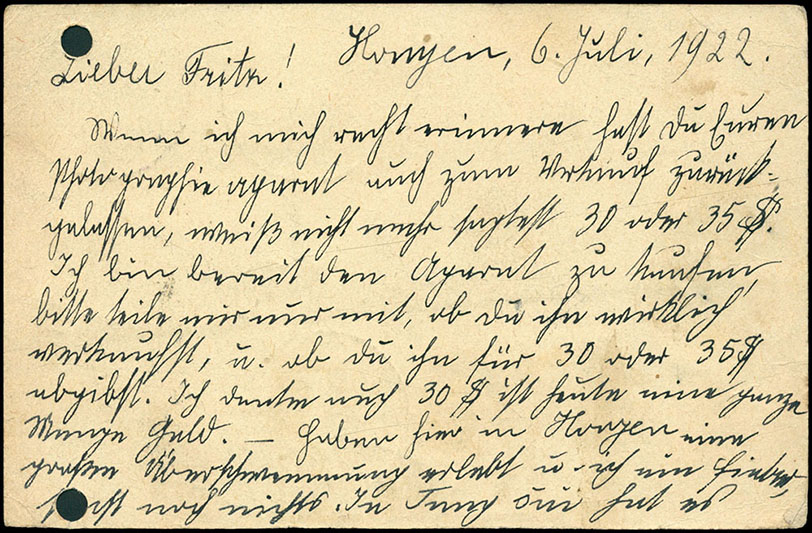 Hongen, 6. Juli, 1922.
Lieber Fritz!
Wenn ich mich recht erinnere hast Du Euren
Photographie aparat auch zum Verkauf zurück-
gelassen, weiß nicht mehr sagtest 30 oder 35 $.
Ich bin bereit den Aparat zu kaufen,
bitte teile mir nur mit, ob du ihn wirklich
verkaufst, u. ob du ihn für 30 oder 35 $
abgibst. Ich denke auch 30 $ ist heute eine ganze
Menge Geld. — Haben hier in Hongen eine
großen Überschwemmung erlebt u. ich ein Fieber,
ist noch nichts. In Tung hat es